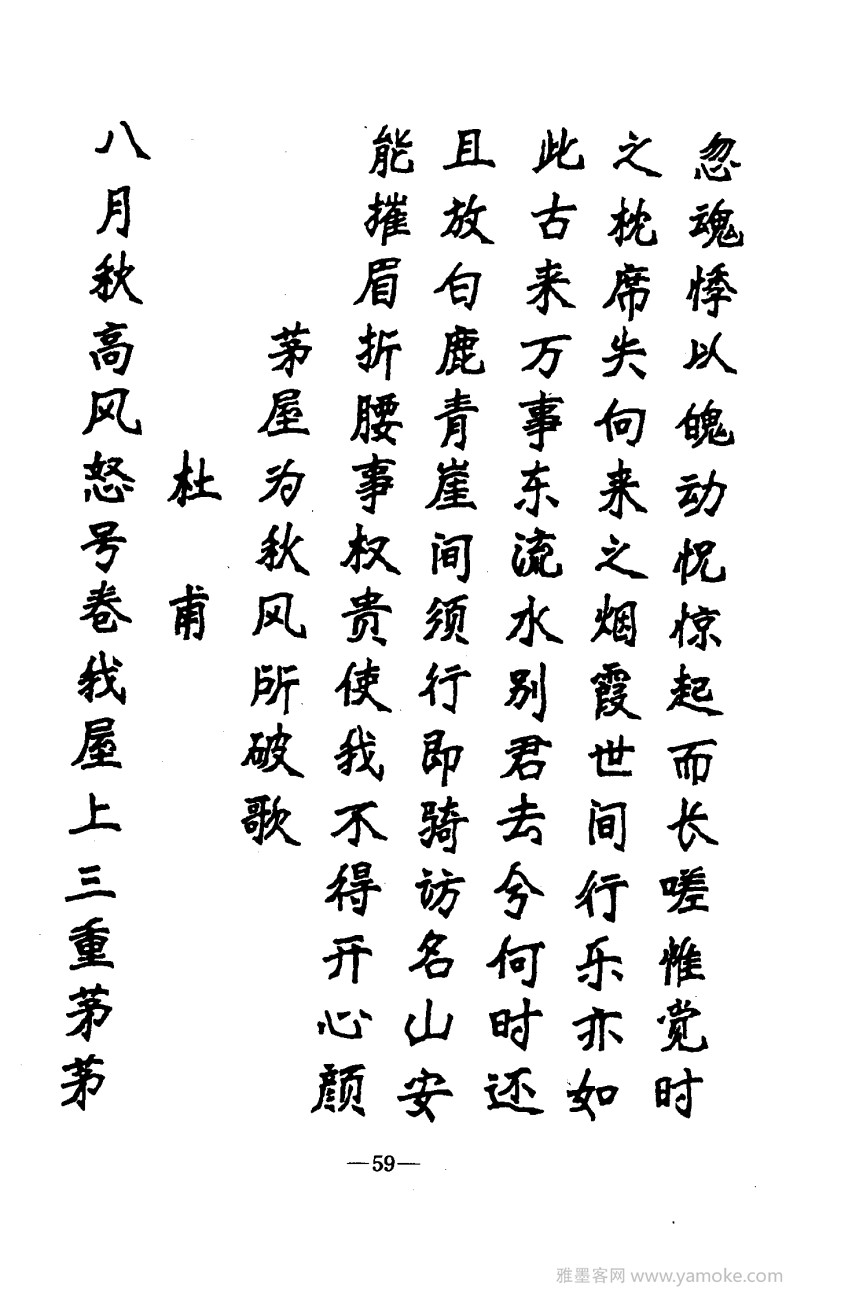 忽魂悸以魄动怳惊起而长嗟惟觉时
之枕席失向来之烟霞世间行乐亦如
此古来万事东流水别君去兮何时还
且放白鹿青崖间须行即骑访名山安
能摧眉折腰事权贵使我不得开心颜
茅屋为秋风所破歌
杜甫
八月秋高风怒号卷我屋上三重茅茅
—59—
雅墨客网 www.yamoke.com